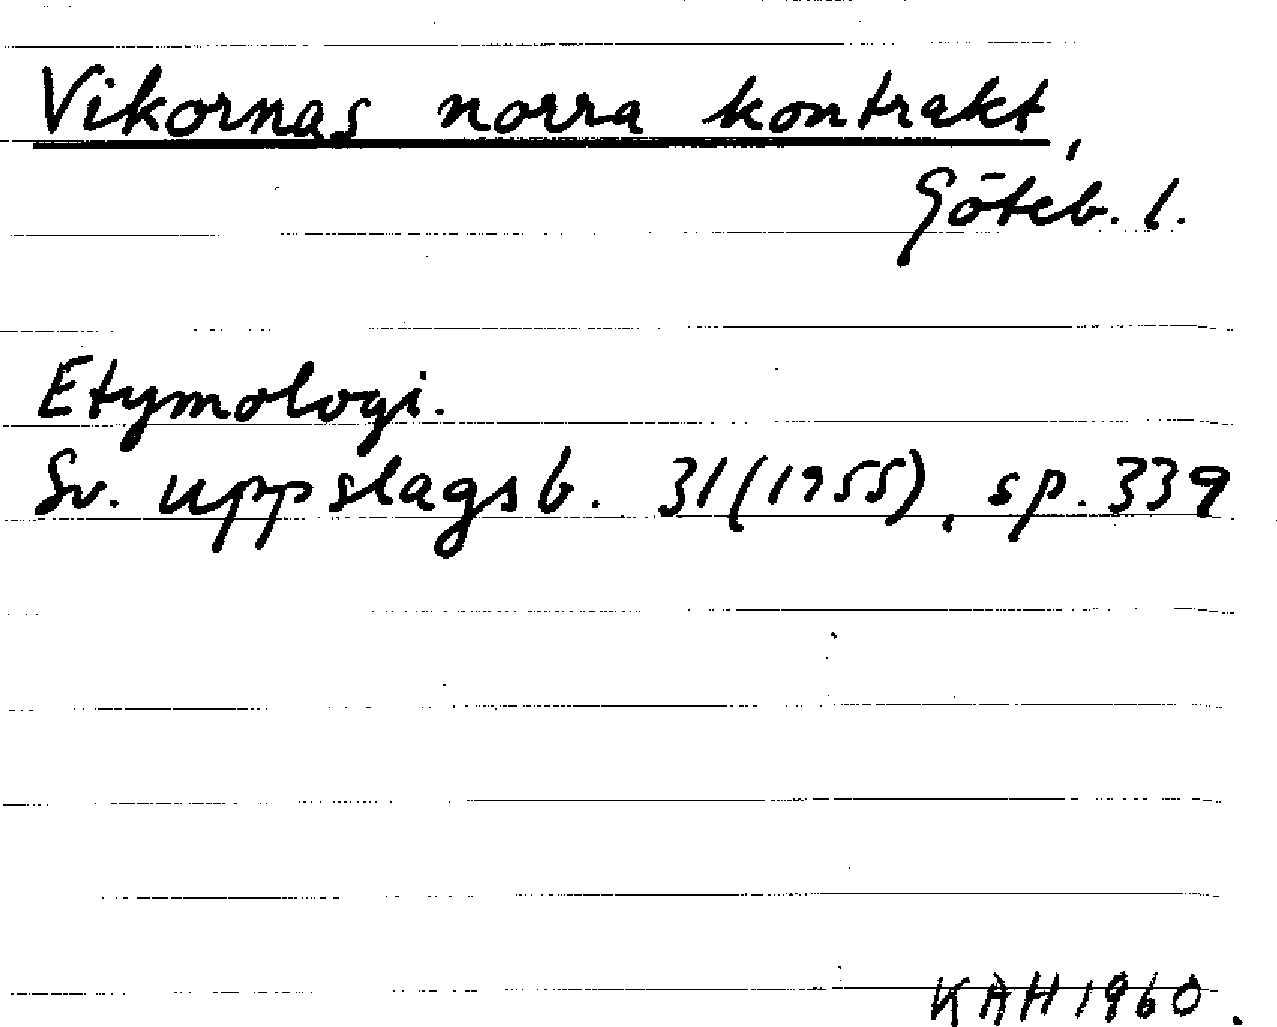 Vikornas norra kontrakt,
Göteb. l.
Etymologi.
Sv. uppslagsb. 31(1955), sp. 339
KAH 1960.